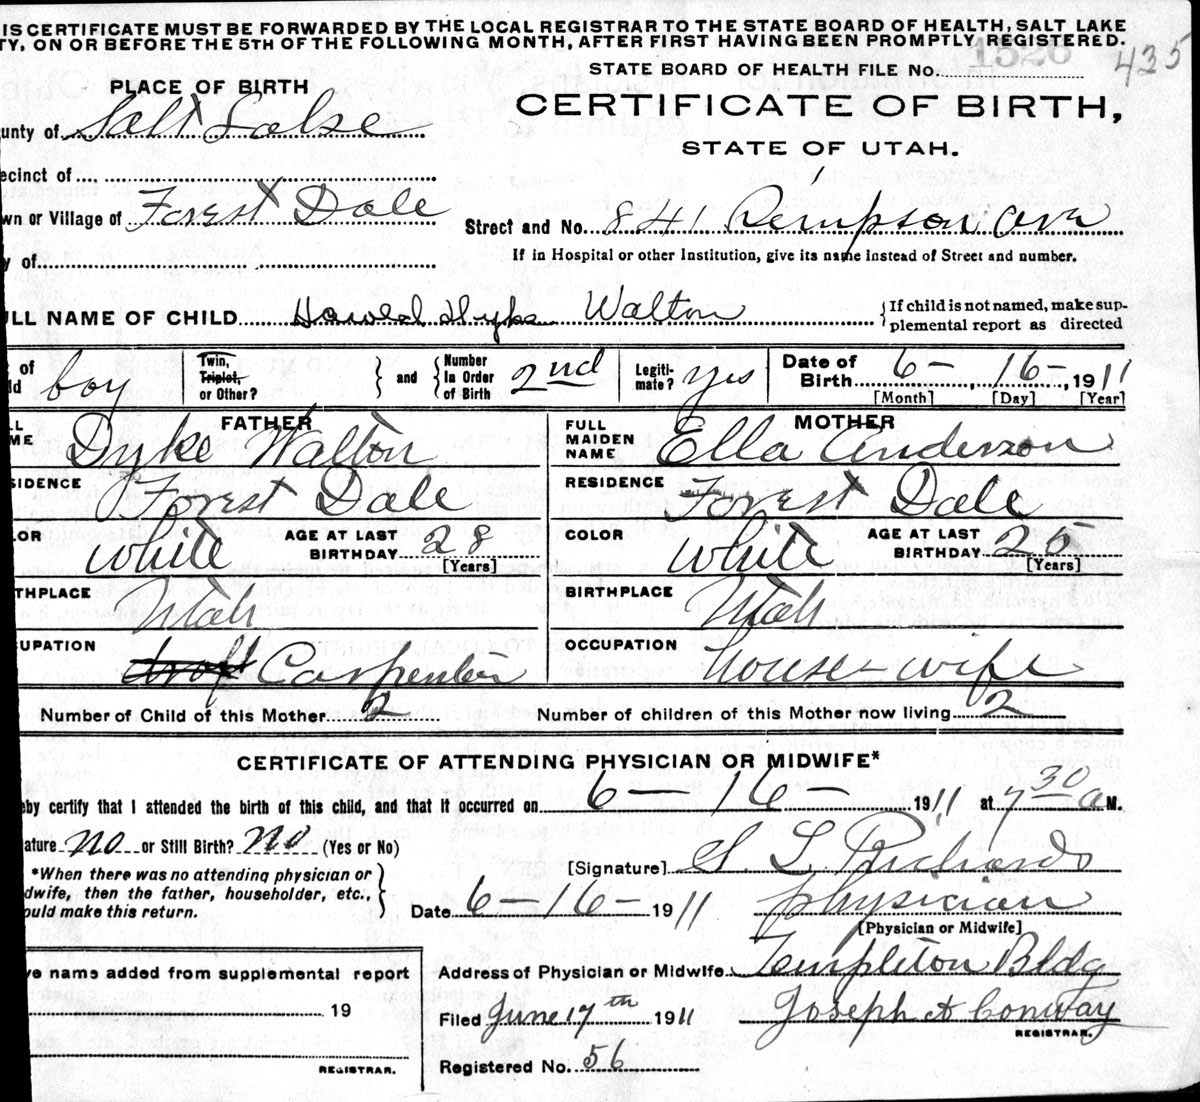 IS CERTIFICATE MUST BE FORWARDED BY THE LOCAL REGISTRAR TO THE STATE BOARD OF HEALTH, SALT LAKE
TY, ON OR BEFORE THE 5TH OF THE FOLLOWING MONTH, AFTER FIRST HAVING BEEN PROMPTLY REGISTERED.
STATE BOARD OF HEALTH FILE No. 1526 435
PLACE OF BIRTH
CERTIFICATE OF BIRTH,
unty of Salt Lake
STATE OF UTAH.
ecinct of
wn or Village of Forest Dale
Street and No. 841 Ave
y of
If in Hospital or other Institution, give its name instead of Street and number.
ULL NAME OF CHILD Walton {If child is not named, make sup-
plemental report as directed
of ld boy
Twin, Triplet, or Other? } and { Number In Order of Birth 2nd
Legiti-mate? yes
Date of Birth 6 - , 16 - , 1911
[Month] [Day] [Year]
FATHER
LL ME Dyke Walton
MOTHER
FULL MAIDEN NAME Ella Anderson
SIDENCE Forest Dale
RESIDENCE Forest Dale
LOR White AGE AT LAST BIRTHDAY 28 [Years]
COLOR White AGE AT LAST BIRTHDAY 25 [Years]
THPLACE Utah
BIRTHPLACE Utah
UPATION Carpenter
OCCUPATION House-wife
Number of Child of this Mother 2 Number of children of this Mother now living 2
CERTIFICATE OF ATTENDING PHYSICIAN OR MIDWIFE*
eby certify that I attended the birth of this child, and that it occurred on 6 - 16 - 1911 at 7 30 a M.
ature no or Still Birth? no (Yes or No)
[Signature] S L Richards
*When there was no attending physician or
dwife, then the father, householder, etc.,
ould make this return. }
Date 6 - 16 - 1911 physician
[Physician or Midwife]
ve name added from supplemental report
Address of Physician or Midwife Templeton Bldg
19
Filed June 17th 1911 Joseph A Conway
REGISTRAR.
REGISTRAR.
Registered No. 56